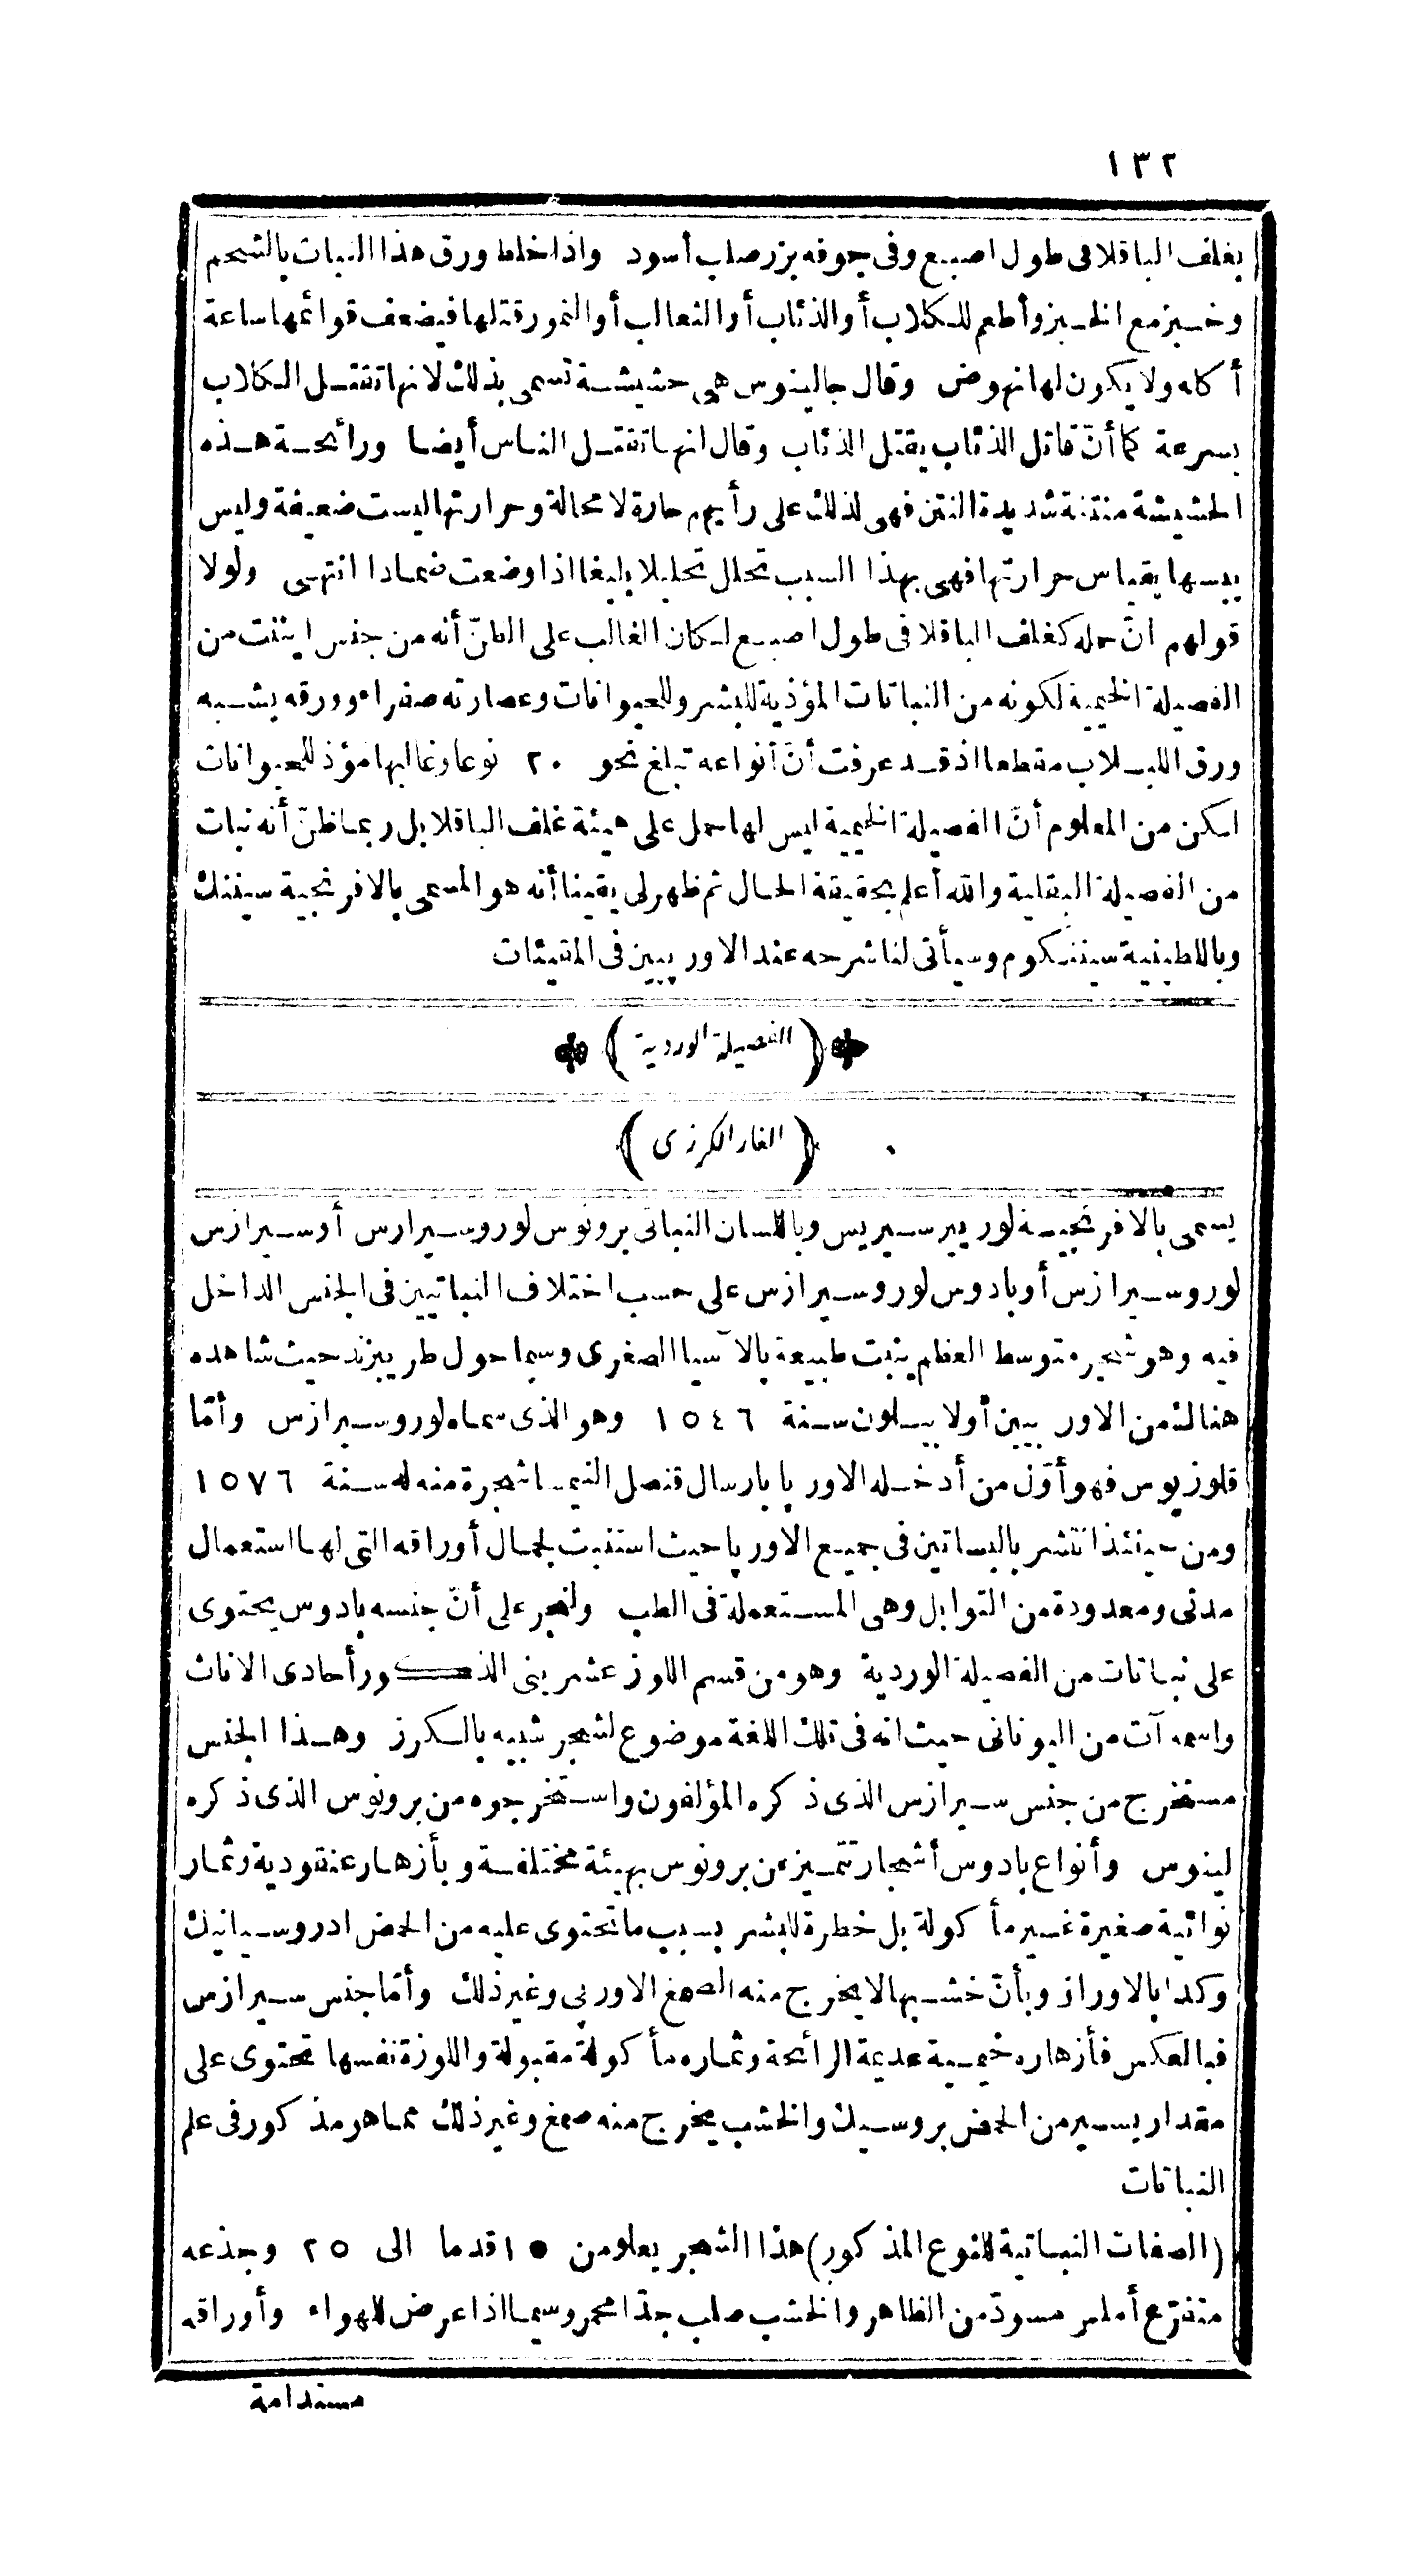 ١٣٢
بغلف الباقلا فى طول اصبع وفى جوفه بزر صلب أسود واذا خلط ورق هذا النبات بالشحم
وخبز مع الخبز وأطعم للكلاب أو الذئاب أو الثعالب أو النمورقتلها فيضعف قوائمها ساعة
أكله ولا يكون لها نهوض وقال جالينوس هى حشيشة تسمى بذلك لانها تقتل الكلاب
بسرعة كما أنّ قاتل الذئاب يقتل الذئاب وقال انها تقتل الناس أيضا ورائحة هذه
الحشيشة منتنة شديدة النتن فهى لذلك على رأيهم حارة لا محالة وحرارتها ليست ضعيفة وليس
يبسها بقياس حرارتها فهى بهذا السبب تحلل تحليلا بليغا اذا وضعت ضمادا انتهى ولولا
قولهم انّ حمله كغلف الباقلا فى طول اصبع لكان الغالب على الظنّ أنه من جنس ايتنت من
الفصيلة الخيمية لكونه من النباتات المؤذية للبشر وللحيوانات وعصارته صفراء وورقه يشبه
ورق اللبلاب مقطعا اذ قد عرفت أنّ أنواعه تبلغ نحو ٢٠ نوعا وغالبها مؤذ للحيوانات
لكن من المعلوم أنّ الفصيلة الخيمية ليس لها حمل على هيئة غلف الباقلا بل ربما ظنّ أنه نبات
من الفصيلة البقلية والله أعلم بحقيقة الحال ثم ظهر لى يقينا أنه هو المسمى بالافرنجية سيننك
وباللاطينية سيننكوم وسيأتى لنا شرحه عند الاوربيين فى المقيئات
(الفصيلة الوردية)
(الغار الكرزى)
يسمى بالافرنجية لوريير سيريس وباللسان النباتى برونوس لوروسيرارس أوسيرازس
لوروسيرازس أو بادوس لوروسيرازس على حسب اختلاف النباتيين فى الجنس الداخل
فيه وهو شجر متوسط العظم ينبت طبيعة بالآسيا الصغرى وسيما حول طربيزند حيث شاهده
هنالك من الاوربيين أولا بيلون سنة ١٥٤٦ وهو الذى سماه لوروسيرازس وأمّا
قلوزيوس فهو أوّل من أدخله الاوربا بارسال قنصل النيمسا شجرة منه له سنة ١٥٧٦
ومن حينئذ انتشر بالبساتين فى جميع الاوربا حيث استنبت لجمال أوراقه التى لها استعمال
مدنى ومعدودة من التوابل وهى المستعملة فى الطب ولنجر على أنّ جنسه بادوس يحتوى
على نباتات من الفصيلة الوردية وهو من قسم اللوز عشرينى الذكور أحادى الاناث
واسمه آت من اليونانى حيث انه فى تلك اللغة موضوع لشجر شبيه بالكرز وهذا الجنس
مستخرج من جنس سيرازس الذى ذكره المؤلفون واستخرجوه من برونوس الذى ذكره
لينوس وأنواع بادوس أشجار تتميز عن برونوس بهيئة مختلفة وبأزهار عنقودية وثمار
نواتية صغيرة غير مأكولة بل خطرة للبشر بسبب ما تحتوى عليه من الحمض ادروسيانيك
وكذا بالاوراق وبأنّ خشبها لا يخرج منه الصمغ الاوربى وغير ذلك وأمّا جنس سيرازس
فبالعكس فأزهاره خيمية عديمة الرائحة وثماره مأكولة مقبولة واللوزة نفسها تحتوى على
مقدار يسير من الحمض بروسيك والخشب يخرج منه صمغ وغير ذلك مما هو مذكور فى علم
النباتات
(الصفات النباتية للنوع المذكور) هذا الشجر يعلو من ١٥ قدما الى ٢٥ وجذعه
متفرّع أملس مسودّ من الظاهر والخشب صلب جدّا محمر وسيما اذا عرض للهواء وأوراقه
مستدامة